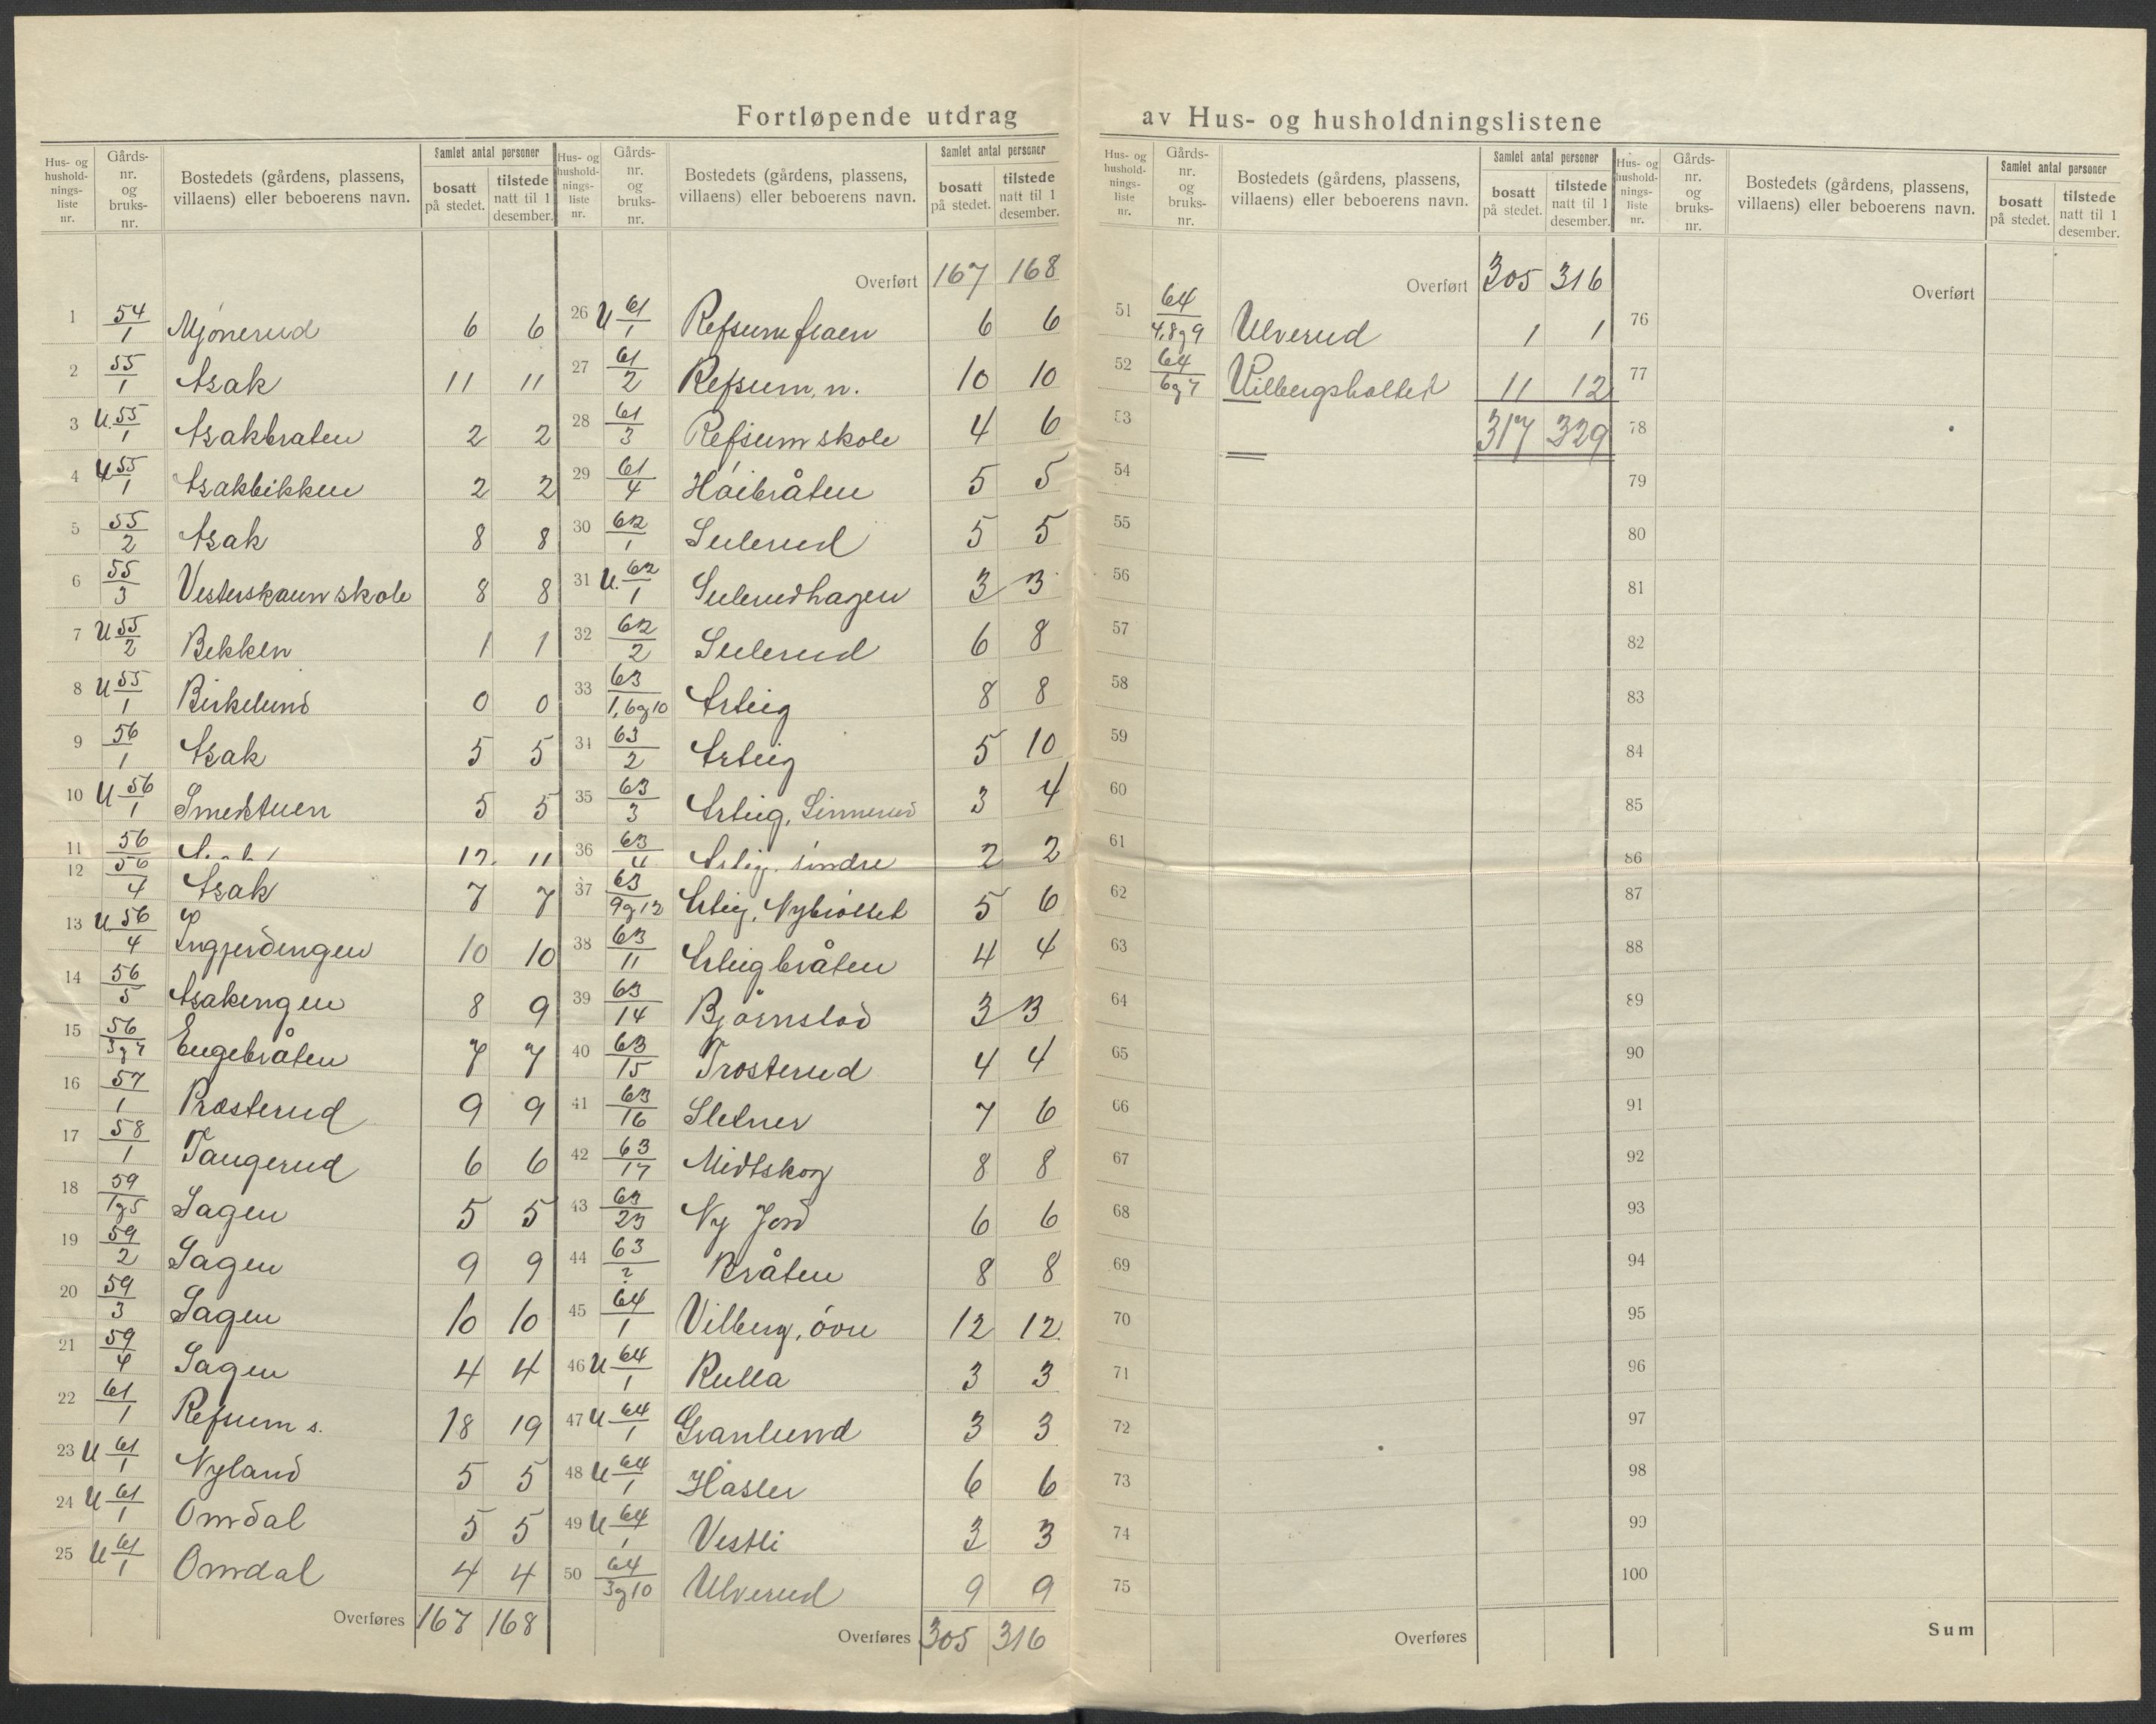 Fortløpende utdrag av Hus- og husholdningslistene
Hus- og husholdnings-liste nr. | Gårds-nr. og bruks-nr. | Bostedets (gårdens, plassens, villaens) eller beboerens navn. | Samlet antal personer | bosatt på stedet. | tilstede natt til 1 desember.
1 54/1 Mjønerud 6 6
2 55/1 Asak 11 11
3 U. 55/1 Asakbraten 2 2
4 U 55/1 Asakbikken 2 2
5 55/2 Asak 8 8
6 55/3 Vesterskaun skole 8 8
7 U 55/2 Bekken 1 1
8 U 55/1 Birkelund 0 0
9 56/1 Asak 5 5
10 U 56/1 Smedstuen 5 5
11 56 12 11
12 56/4 Asak 7 7
13 U 56/4 Ingjerdingen 10 10
14 56/5 Asakengen 8 9
15 56/3og7 Engebråten 7 7
16 57/1 Præsterud 9 9
17 58/1 Taugerud 6 6
18 59/1og5 Sagen 5 5
19 59/2 Sagen 9 9
20 59/3 Sagen 10 10
21 59/4 Sagen 4 4
22 61/1 Refsum s. 18 19
23 U 61/1 Nyland 5 5
24 U 61/1 Omdal 5 5
25 U 61/1 Omdal 4 4
Overføres 167 168
Hus- og husholdnings-liste nr. | Gårds-nr. og bruks-nr. | Bostedets (gårdens, plassens, villaens) eller beboerens navn. | Samlet antal personer | bosatt på stedet. | tilstede natt til 1 desember.
Overført 167 168
26 U 61/1 Refsum 6 6
27 61/2 Refsum, n. 10 10
28 61/3 Refsum skole 4 6
29 61/4 Høibråten 5 5
30 62/1 Sulerud 5 5
31 U. 62/1 Sulerudhagen 3 3
32 62/2 Sulerud 6 8
33 63/1,6og10 Arteig 8 8
34 63/2 Arteig 5 10
35 63/3 Arteig, Linnerud 3 4
36 63/4 Arteig, søndre 2 2
37 63/9og12 Arteig, Nybrottet 5 6
38 63/11 Arteigbråten 4 4
39 63/14 Bjørnstad 3 3
40 63/15 Trosterud 4 4
41 63/16 Sletner 7 6
42 63/17 Midtskog 8 8
43 63/23 Ny Jord 6 6
44 63/? Bråten 8 8
45 64/1 Vilberg, øvre 12 12
46 U 64/1 Rulla 3 3
47 U 64/1 Granlund 3 3
48 U 64/1 Hasler 6 6
49 U 64/1 Vestli 3 3
50 64/3og10 Ulverud 9 9
Overføres 305 316
Hus- og husholdnings-liste nr. | Gårds-nr. og bruks-nr. | Bostedets (gårdens, plassens, villaens) eller beboerens navn. | Samlet antal personer | bosatt på stedet. | tilstede natt til 1 desember.
Overført 305 316
51 64/4,8og9 Ulverud 1 1
52 64/6og7 Vilbergsholtet 11 12
53 317 329
54
55
56
57
58
59
60
61
62
63
64
65
66
67
68
69
70
71
72
73
74
75
Overføres
Hus- og husholdnings-liste nr. | Gårds-nr. og bruks-nr. | Bostedets (gårdens, plassens, villaens) eller beboerens navn. | Samlet antal personer | bosatt på stedet. | tilstede natt til 1 desember.
Overført
76
77
78
79
80
81
82
83
84
85
86
87
88
89
90
91
92
93
94
95
96
97
98
99
100
Sum